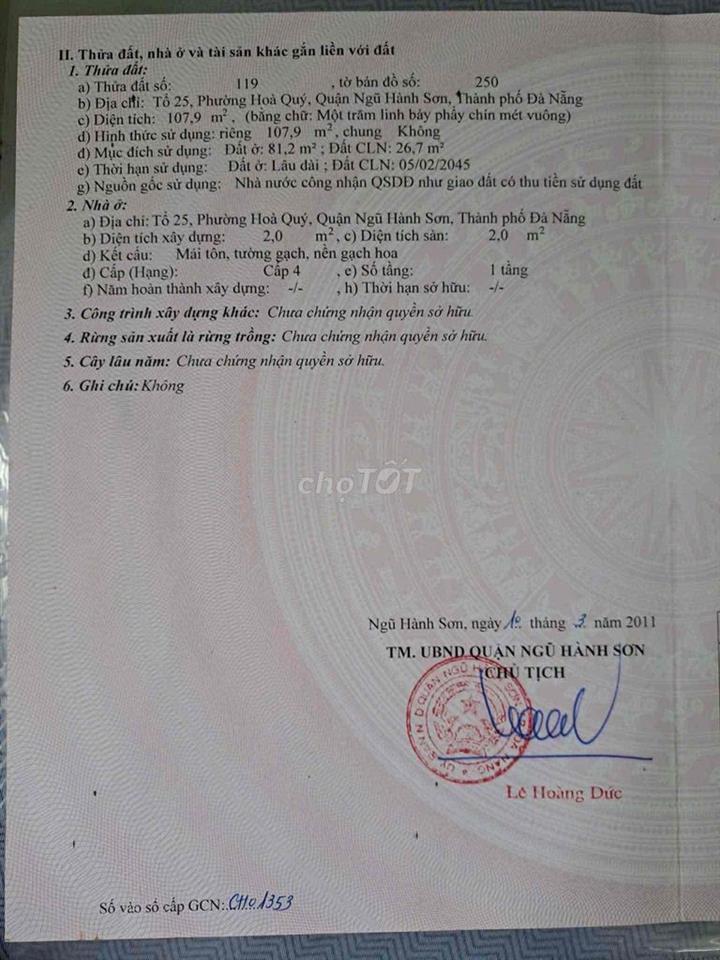 II. Thửa đất, nhà ở và tài sản khác gắn liền với đất
1. Thửa đất:
a) Thửa đất số: 119 , tờ bản đồ số: 250
b) Địa chỉ: Tổ 25, Phường Hoà Quý, Quận Ngũ Hành Sơn, Thành phố Đà Nẵng
c) Diện tích: 107,9 m², (bằng chữ: Một trăm linh bảy phẩy chín mét vuông)
d) Hình thức sử dụng: riêng 107,9 m², chung Không
đ) Mục đích sử dụng: Đất ở: 81,2 m² ; Đất CLN: 26,7 m²
e) Thời hạn sử dụng: Đất ở: Lâu dài ; Đất CLN: 05/02/2045
g) Nguồn gốc sử dụng: Nhà nước công nhận QSDĐ như giao đất có thu tiền sử dụng đất
2. Nhà ở:
a) Địa chỉ: Tổ 25, Phường Hoà Quý, Quận Ngũ Hành Sơn, Thành phố Đà Nẵng
b) Diện tích xây dựng: 2,0 m², c) Diện tích sàn: 2,0 m²
d) Kết cấu: Mái tôn, tường gạch, nền gạch hoa
đ) Cấp (Hạng): Cấp 4 , e) Số tầng: 1 tầng
f) Năm hoàn thành xây dựng: -/- , h) Thời hạn sở hữu: -/-
3. Công trình xây dựng khác: Chưa chứng nhận quyền sở hữu.
4. Rừng sản xuất là rừng trồng: Chưa chứng nhận quyền sở hữu.
5. Cây lâu năm: Chưa chứng nhận quyền sở hữu.
6. Ghi chú: Không
chợTỐT
Ngũ Hành Sơn, ngày 10 tháng 3 năm 2011
TM. UBND QUẬN NGŨ HÀNH SƠN
CHỦ TỊCH
Lê Hoàng Đức
Số vào sổ cấp GCN: CH01353